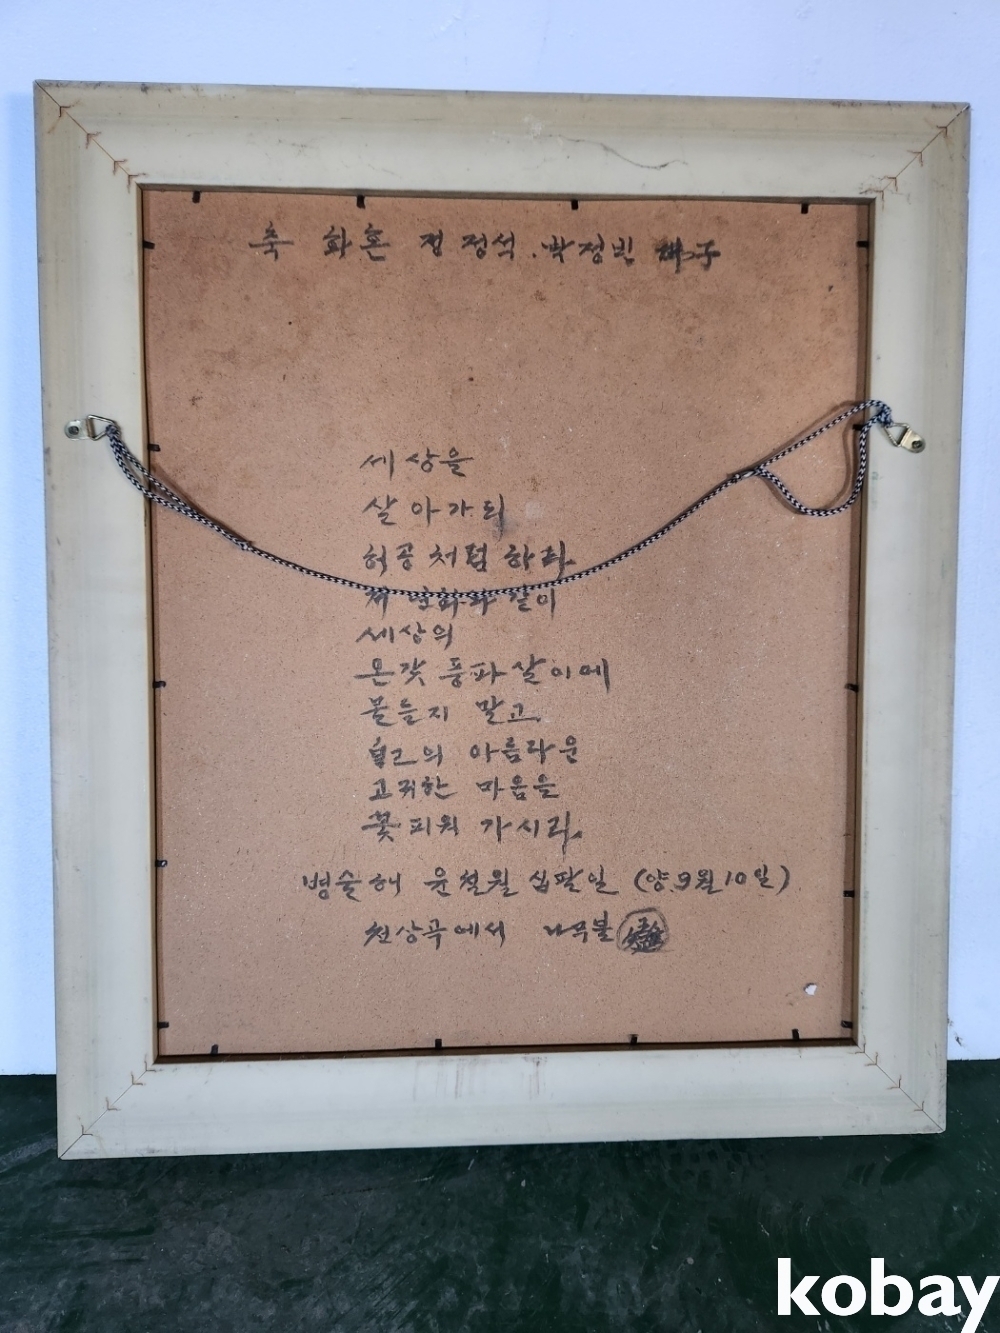 축 화혼 정정석.박정빈
세상을
살아가되
허공처럼 하라.
저 연화와 같이
세상의
온갖 풍파살이에
물들지 말고
自己의 아름다운
고귀한 마음을
꽃피워 가시라.
병술해 윤칠월 십팔일 (양 9월 10일)
천상곡에서 나무불
kobay